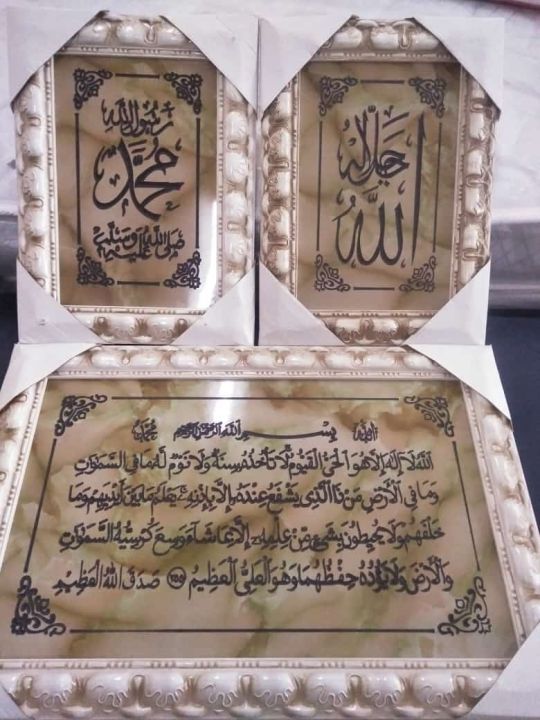 رسول الله
محمد
صلى الله عليه وسلم
جل جلاله
الله
الله بسم الله الرحمن الرحيم محمد
الله لا إله إلا هو الحي القيوم لا تأخذه سنة ولا نوم له ما في السموات
وما في الأرض من ذا الذي يشفع عنده إلا بإذنه يعلم ما بين أيديهم وما
خلفهم ولا يحيطون بشيء من علمه إلا بما شاء وسع كرسيه السموات
والأرض ولا يؤده حفظهما وهو العلي العظيم ٢٥٥ صدق الله العظيم